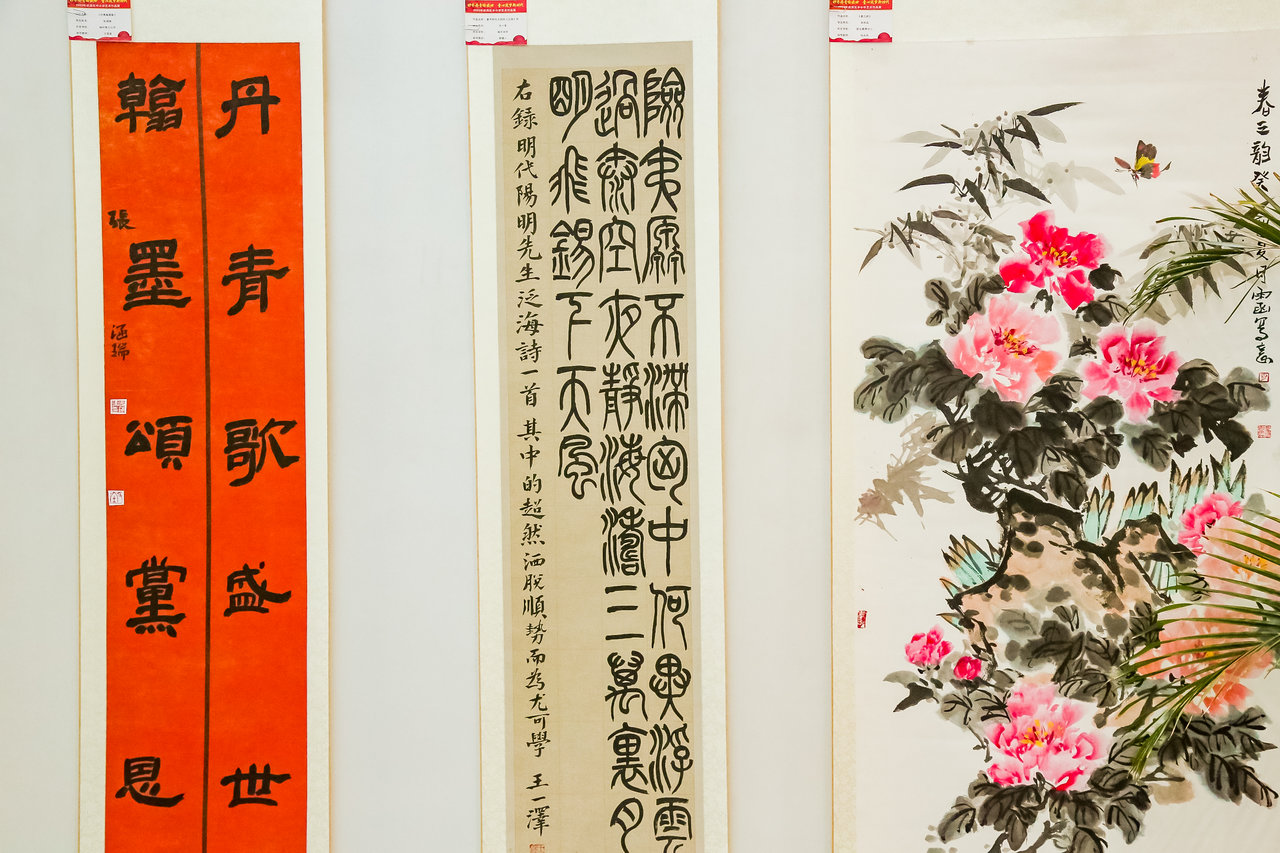 丹青歌盛世
翰墨頌黨恩
張涵瑞
險夷原不滯胸中何異浮雲
過太空夜靜海濤三萬里月
明飛錫下天風
右録明代陽明先生泛海詩一首 其中的超然洒脱順勢而為尤可學 王一澤
春之韵癸
夏月
寫意